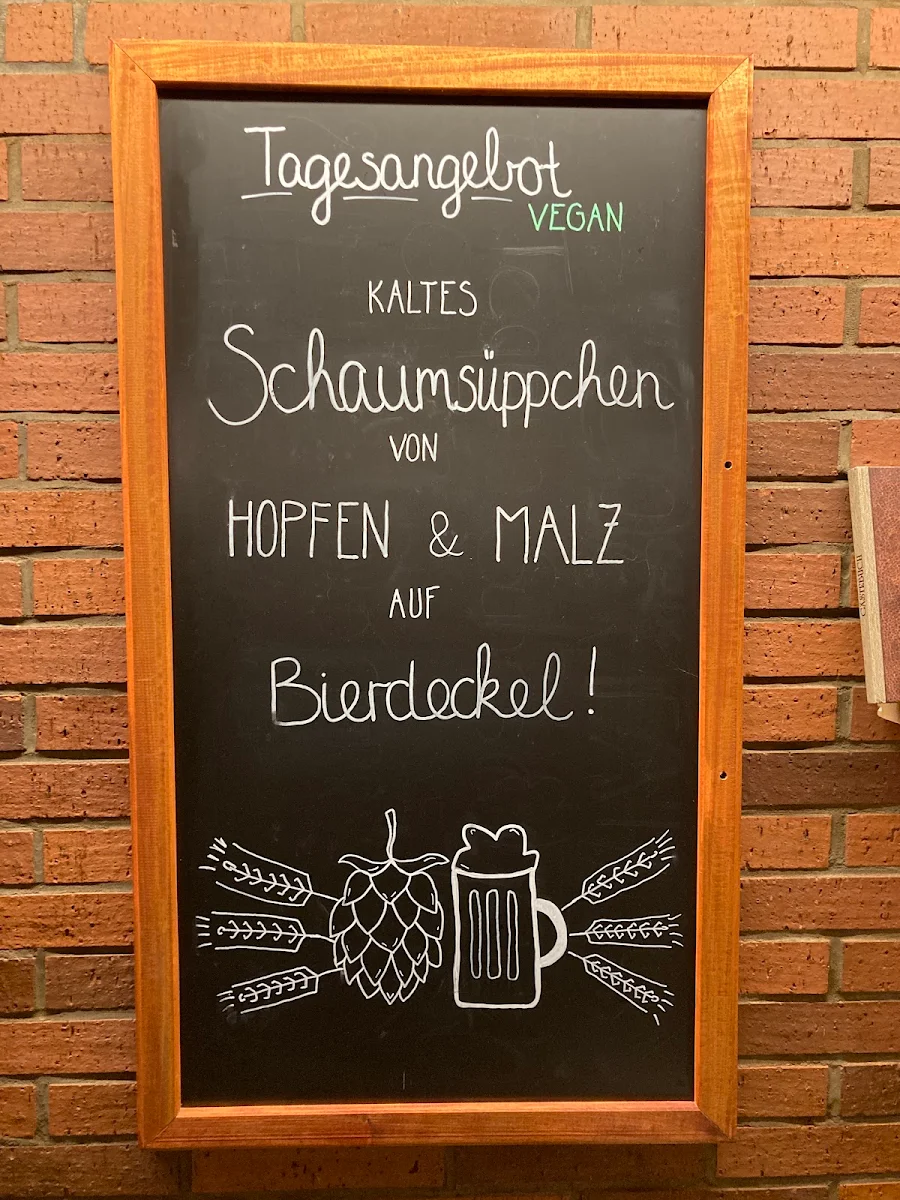 Tagesangebot
VEGAN
KALTES
Schaumsüppchen
VON
HOPFEN & MALZ
AUF
Bierdeckel!
GÄSTEBUCH